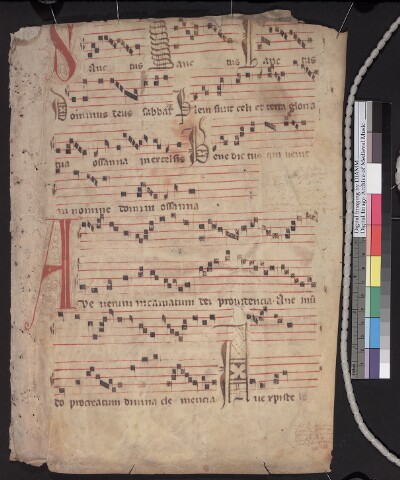 Sanc tus Sanc tus Sanc tus
Dominus deus sabbat Pleni sunt celi et terra gloria
tua ossanna in excelsis Bene dic tus qui venit
in nomine domini ossanna
Ave verum incarnatum dei providencia Ave mū
do procreatum divina cle mencia Ave xpiste
Digital Imaging by DIAMM
Digital Image Archive of Medieval Music